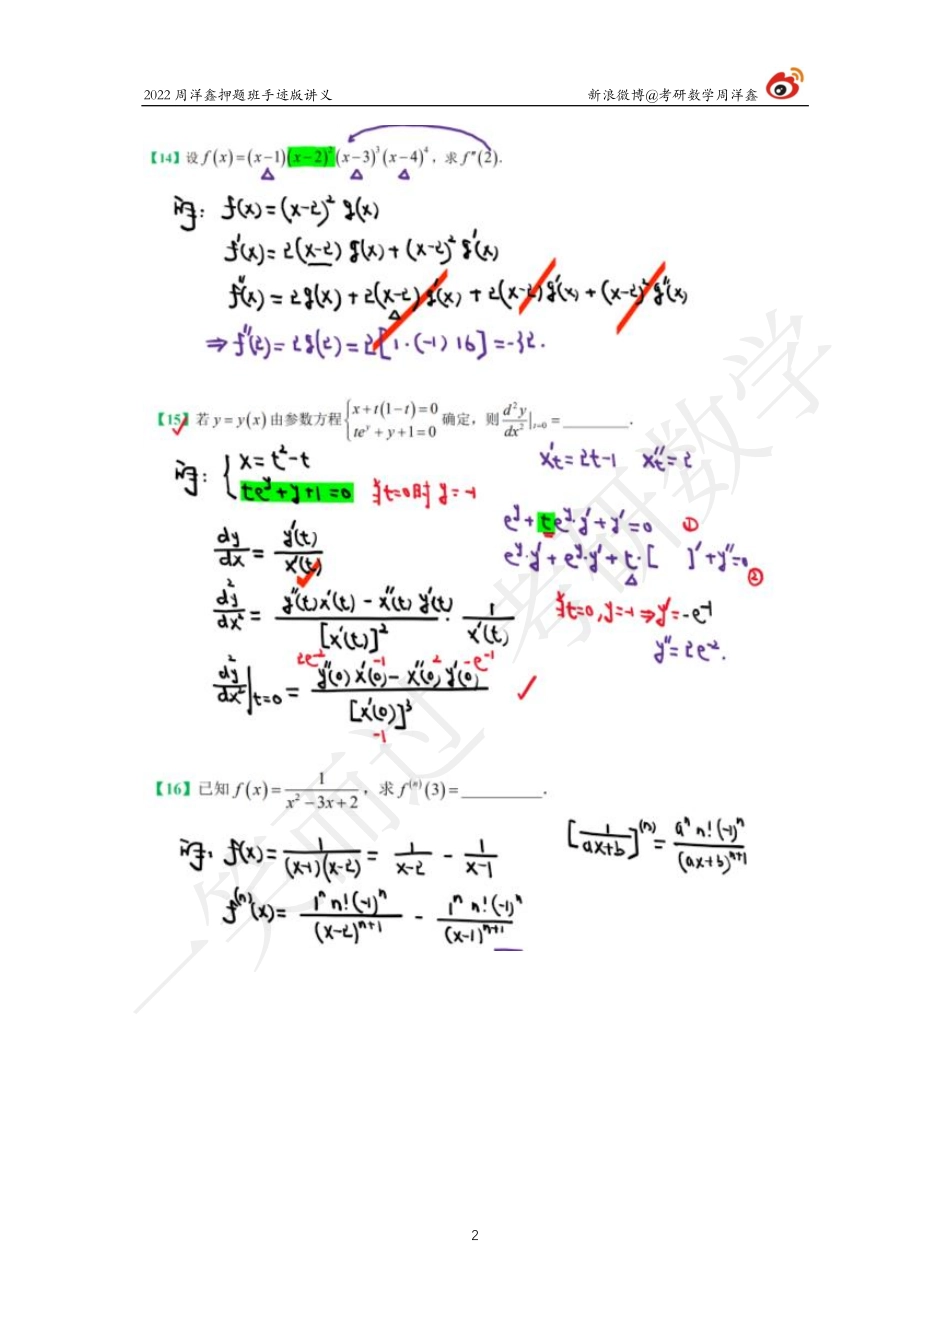 2022 周洋鑫押题班手迹版讲义 新浪微博@考研数学周洋鑫
【14】设 f(x)=(x−1)(x−2)²(x−3)³(x−4)⁴，求 f″(2).
解：f(x)=(x-2)² g(x)
f′(x)=2(x-2) g(x)+(x-2)² g′(x)
f″(x)=2g(x)+2(x-2) g′(x)+2(x-2)g′(x)+(x-2)²g″(x)
⇒f″(2)=2g(2)=2[1·(-1)16]=-32.
【15】若 y=y(x) 由参数方程 {x+t(1−t)=0 te^y+y+1=0 确定，则 d²y/dx²|t=0=________.
解：{x=t²-t
te^y+y+1=0 当t=0时 y=-1
x′t=2t-1 x″t=2
e^y+te^y·y′+y′=0 ①
e^y·y′+e^y·y′+t·[ ]′+y″=0 ②
dy/dx=y′(t)/x′(t)
d²y/dx²=y″(t)x′(t)-x″(t)y′(t)/[x′(t)]²·1/x′(t)
当t=0,y=-1⇒y′=-e⁻¹
y″=2e⁻².
2e⁻² -1 2 -e⁻¹
d²y/dx²|t=0=y″(0)x′(0)-x″(0)y′(0)/[x′(0)]³
-1
【16】已知 f(x)=1/(x²−3x+2)，求 f⁽ⁿ⁾(3)=________.
解：f(x)=1/(x-1)(x-2)=1/(x-2)-1/(x-1)
[1/(ax+b)]⁽ⁿ⁾=aⁿn!(-1)ⁿ/(ax+b)ⁿ⁺¹
f⁽ⁿ⁾(x)=1ⁿn!(-1)ⁿ/(x-2)ⁿ⁺¹-1ⁿn!(-1)ⁿ/(x-1)ⁿ⁺¹
一笑而过 考研数学
2